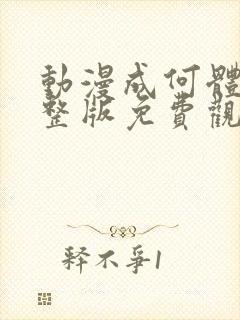 動漫成何體
整版免費觀
释不爭1